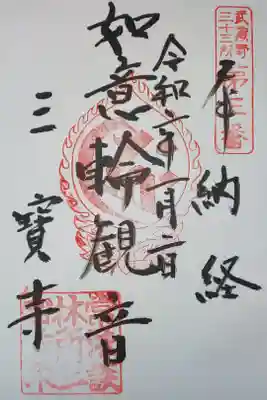 武蔵野
三十三所
第三番
奉納経
令和六年一月二日
如意輪観音
三寳寺